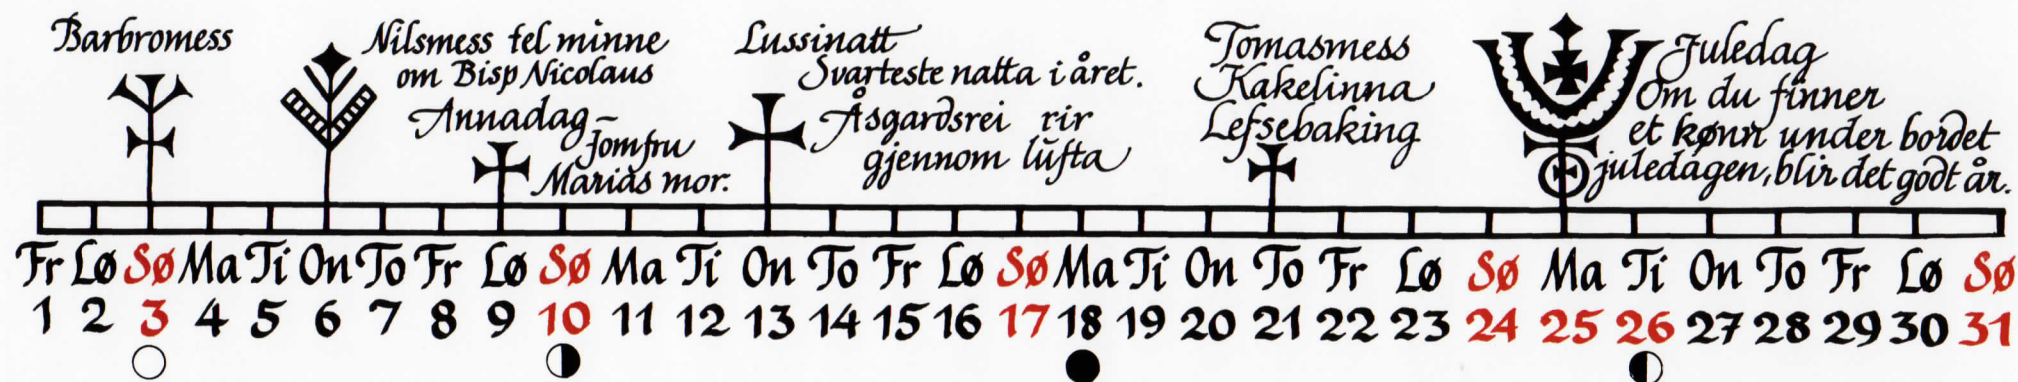 Barbromess
Nilsmess tel minne
om Bisp Nicolaus
Annadag –
Jomfru
Marias mor.
Lussinatt
Svarteste natta i året.
Åsgardsrei rir
gjennom lufta
Tomasmess
Kakelinna
Lefsebaking
Juledag
Om du finner
et kønn under bordet
juledagen, blir det godt år.
Fr Lø Sø Ma Ti On To Fr Lø Sø Ma Ti On To Fr Lø Sø Ma Ti On To Fr Lø Sø Ma Ti On To Fr Lø Sø
1 2 3 4 5 6 7 8 9 10 11 12 13 14 15 16 17 18 19 20 21 22 23 24 25 26 27 28 29 30 31